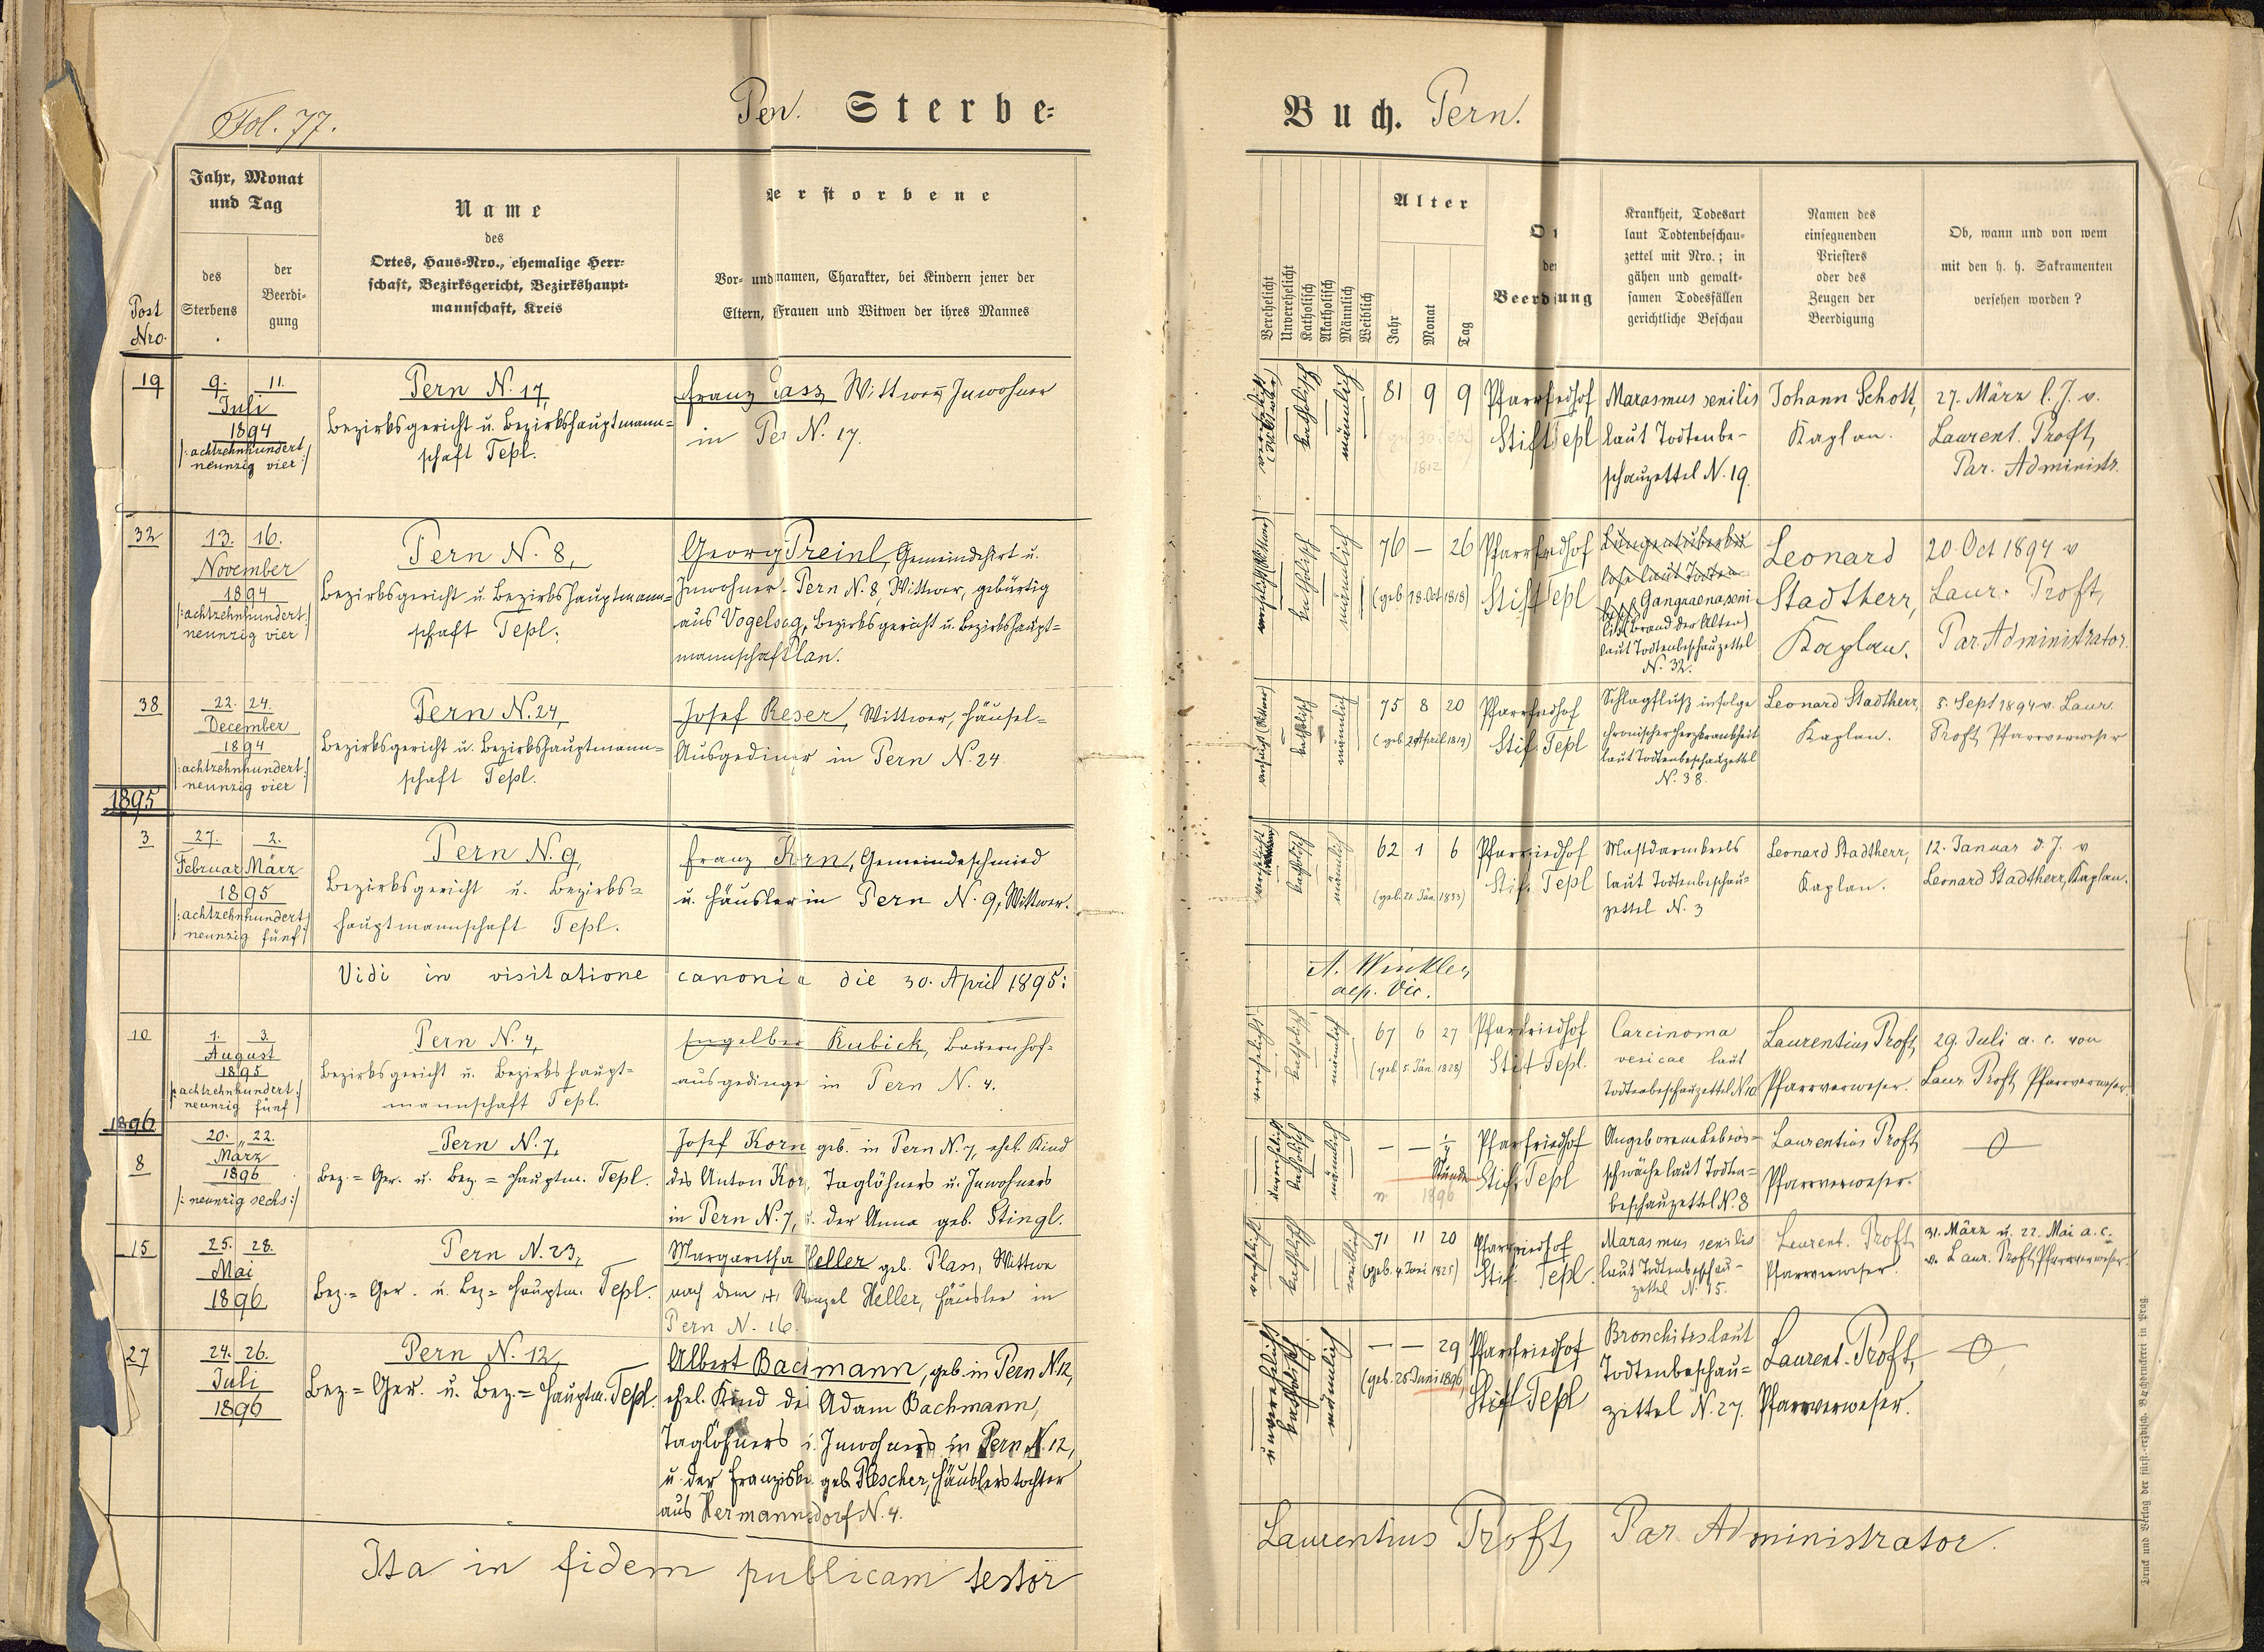 Fol. 77.
Pern. Sterbe-
Buch. Pern.
Post Nro.
Jahr, Monat
und Tag
des
Sterbens
der
Beerdi-
gung
Name
des
Ortes, Haus-Nro., ehemalige Herr-
schaft, Bezirksgericht, Bezirkshaupt-
mannschaft, Kreis
Verstorbene
Vor- und namen, Charakter, bei Kindern jener der
Eltern, Frauen und Witwen der ihres Mannes
Verehelicht
Unverehelicht
Katholisch
Akatholisch
Männlich
Weiblich
Alter
Jahr
Monat
Tag
Or
der
Beerdigung
Krankheit, Todesart
laut Todtenbeschau-
zettel mit Nro.; in
gähen und gewalt-
samen Todesfällen
gerichtliche Beschau
Namen des
einsegnenden
Priesters
oder des
Zeugen der
Beerdigung
Ob, wann und von wem
mit den h. h. Sakramenten
versehen worden?
19
9. 11.
Juli
1894
/:achtzehnhundert
neunzig vier:/
Pern N. 17,
Bezirksgericht u. Bezirkshauptmann=
schaft Tepl.
Franz Wittwer, Inwohner
in Per N. 17.
katholisch
männlich
81 9 9
1812
Pfarrfriedhof
Stift Tepl
Marasmus senilis
laut Todtenbe-
schauzettel N. 19.
Johann Schott,
Kaplan.
27. März l. J. v.
Laurent. Proft,
Par. Administr.
32
13. 16.
November
1894
/:achtzehnhundert:/
neunzig vier
Pern N. 8,
Bezirksgericht u. Bezirkshauptmann=
schaft Tepl.
Georg Preinl, Gemeindehirt u.
Inwohner Pern N. 8, Wittwer, gebürtig
aus Vogelsag, Bezirksgericht u. Bezirkshaupt=
mannschaft Plan.
katholisch
männlich
76 — 26
(geb. 18. Oct. 1818)
Pfarrfriedhof
Stift Tepl
Gangraena seni
lis (Brand der Alten)
laut Todtenbeschauzettel
N. 32.
Leonard
Stadtherr,
Kaplan.
20. Oct 1894 v
Laur. Proft,
Par. Administrator.
38
22. 24.
December
1894
/:achtzehnhundert:/
neunzig vier
Pern N. 24,
Bezirksgericht u. Bezirkshauptmann=
schaft Tepl.
Josef Reser, Wittwer, Häusel=
Ausgedinger in Pern N. 24.
katholisch
männlich
75 8 20
(geb. 2 April 1819)
Pfarrfriedhof
Stift Tepl
Schlagfluß infolge
chronischer Herzkrankheit
laut Todtenbeschauzettel
N. 38.
Leonard Stadtherr,
Kaplan.
5. Sept 1894 v. Laur.
Proft, Pfarrverweser
1895
3
27. 2.
Februar März
1895
/:achtzehnhundert
neunzig fünf:/
Pern N. 9,
Bezirksgericht u. Bezirks=
hauptmannschaft Tepl.
Franz Korn, Gemeindeschmied
u. Häusler in Pern N. 9, Wittwer.
katholisch
männlich
62 1 6
(geb. 21. Jän. 1833)
Pfarrfriedhof
Stift Tepl
Mastdarmkrebs
laut Todtenbeschau=
zettel N. 3
Leonard Stadtherr,
Kaplan.
12. Januar d. J. v
Leonard Stadtherr, Kaplan.
Vidi in visitatione canonica die 30. April 1895:
A. Winkler,
aep. Vic.
10
1. 3.
August
1895
/:achtzehnhundert:/
neunzig fünf
Pern N. 4,
Bezirksgericht u. Bezirkshaupt=
mannschaft Tepl.
Engelber Kubick, Bauernhof=
ausgedinge in Pern N. 4.
verehelicht
katholisch
männlich
67 6 27
(geb. 5. Jän. 1828)
Pfarrfriedhof
Stift Tepl.
Carcinoma
vesicae laut
Todtenbeschauzettel N. 10.
Laurentius Proft,
Pfarrverweser.
29. Juli a. c. von
Laur. Proft, Pfarrverweser
1896
8
20. „ 22.
März
1896
/:neunzig sechs:/
Pern N. 7,
Bez.= Ger. u. Bez.= Hauptm. Tepl.
Josef Korn geb. in Pern N. 7, ehel. Kind
des Anton Kor, Taglöhners u. Inwohners
in Pern N. 7, u. der Anna geb. Stingl.
unverehelicht
katholisch
männlich
— — ½
Stunde
1896
Pfarrfriedhof
Stift Tepl
Angeborene Lebens=
schwäche laut Todten=
beschauzettel N. 8
Laurentius Proft,
Pfarrverweser.
15
25. 28.
Mai
1896
Pern N. 23,
Bez.= Ger. u. Bez.= Hauptm. Tepl.
Margaretha Heller geb. Plass, Wittwe
nach dem /+/ Wenzel Heller, Häusler in
Pern N. 16.
katholisch
weiblich
71 11 20
(geb. 4. Juni 1825)
Pfarrfriedhof
Stift Tepl.
Marasmus senilis
laut Todtenbeschau-
zettel N. 15.
Laurent. Proft
Pfarrverweser.
31. März u. 22. Mai a. c.
v. Laur. Proft, Pfarrverweser.
27
24. 26.
Juli
1896
Pern N. 12,
Bez.= Ger. u. Bez.= Hauptm. Tepl.
Albert Bachmann, geb. in Pern N. 12,
ehel. Kind des Adam Bachmann,
Taglöhners u. Inwohners in Pern N. 12,
u. der Franziska geb. Plescher, Häuslerstochter
aus Hermannsdorf N. 4.
unverehelicht
katholisch
männlich
— — 29
(geb. 25 Juni 1896)
Pfarrfriedhof
Stift Tepl
Bronchitis laut
Todtenbeschau=
zettel N. 27.
Laurent. Proft,
Pfarrverweser.
Ita in fidem publicam testor
Laurentius Proft, Par. Administrator.
Druck und Verlag der fürst.-erzbisch. Buchdruckerei in Prag.